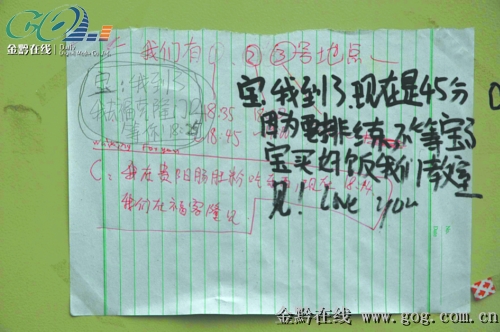 金黔在线
我们有
②③号地点
宝:我到了
我去福客隆门口
等你
18:35
18:45
宝 我到了.现在是45分
因为要排练.不等宝了
宝买好饭我们教室
见! Love you
C:我在贵阳肠旺粉吃东西,现在 18:14
我们在福客隆见
金黔在线 www.gog.com.cn